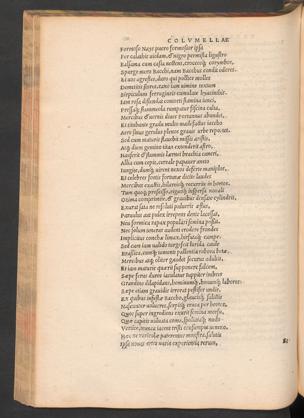 COLVMELLAE
Formoso Nais puero formosior ipsa
Fer calathis uiolam, & nigro permista ligustro
Balsama cum casia nectens, croceosq; corymbos,
Sparge mero Bacchi, nam Bacchus condit odores.
Et uos agrestes, duro qui pollice molles
Demetitis flores, cano iam uimine textum
Sirpiculum ferrugineis cumulate hyacinthis.
Iam rosa distendat contorti stamina iunci,
Pressaq; flammeola rumpatur fiscina calta,
Mercibus & uernis diues Vertumnus abundet,
Et titubante gradu multo madefactus Iaccho
Aere sinus gerulus plenos grauis urbe reportet.
Sed cum maturis flauebit messis aristis,
Atq; diem gemino titan extenderit astro,
Hauserit & flammis lernæi brachia cancri,
Allia cum cepis, cereale papauer anetho
Iungite, dumq; uirent nexos deferte manipulos,
Et celebres fortis fortunæ dicite laudes
Mercibus exactis, hilaresq; recurrite in hortos.
Tum quoq; proscisso, riguoq; inspersa nouali
Ocima comprimite, & grauibus densate cylindris,
Exurat sata ne resoluti pulueris æstus,
Paruulus aut pulex irrepens dente lacessat,
Neu formica rapax populari semina possit.
Nec solum teneras audent erodere frondes
Implicitus conchæ limax, hirsutaq; campe:
Sed cum iam ualido turgescit lurida caule
Brassica, cumq; tument pallentia robora betæ,
Mercibus atq; olitor gaudet securus adultis,
Et iam maturis quærit supponere falcem,
Sæpe ferus duros iaculatur iuppiter imbres
Grandine dilapidans, hominumq;, boumq; labores:
Sæpe etiam grauidis irrorat pestifer undis,
Ex quibus infestæ Baccho, glaucisq; salictis
Nascuntur uolucres, serpitq; eruca per hortos,
Quos super ingrediens exurit semina morsu,
Quæ capitis uiduata coma, spoliataq; nudo
Vertice, trunca iacent tristi consumpta ueneno.
Hæc ne ruricolæ paterentur monstra, salutis
Ipsa nouas artis uaria experientia rerum,